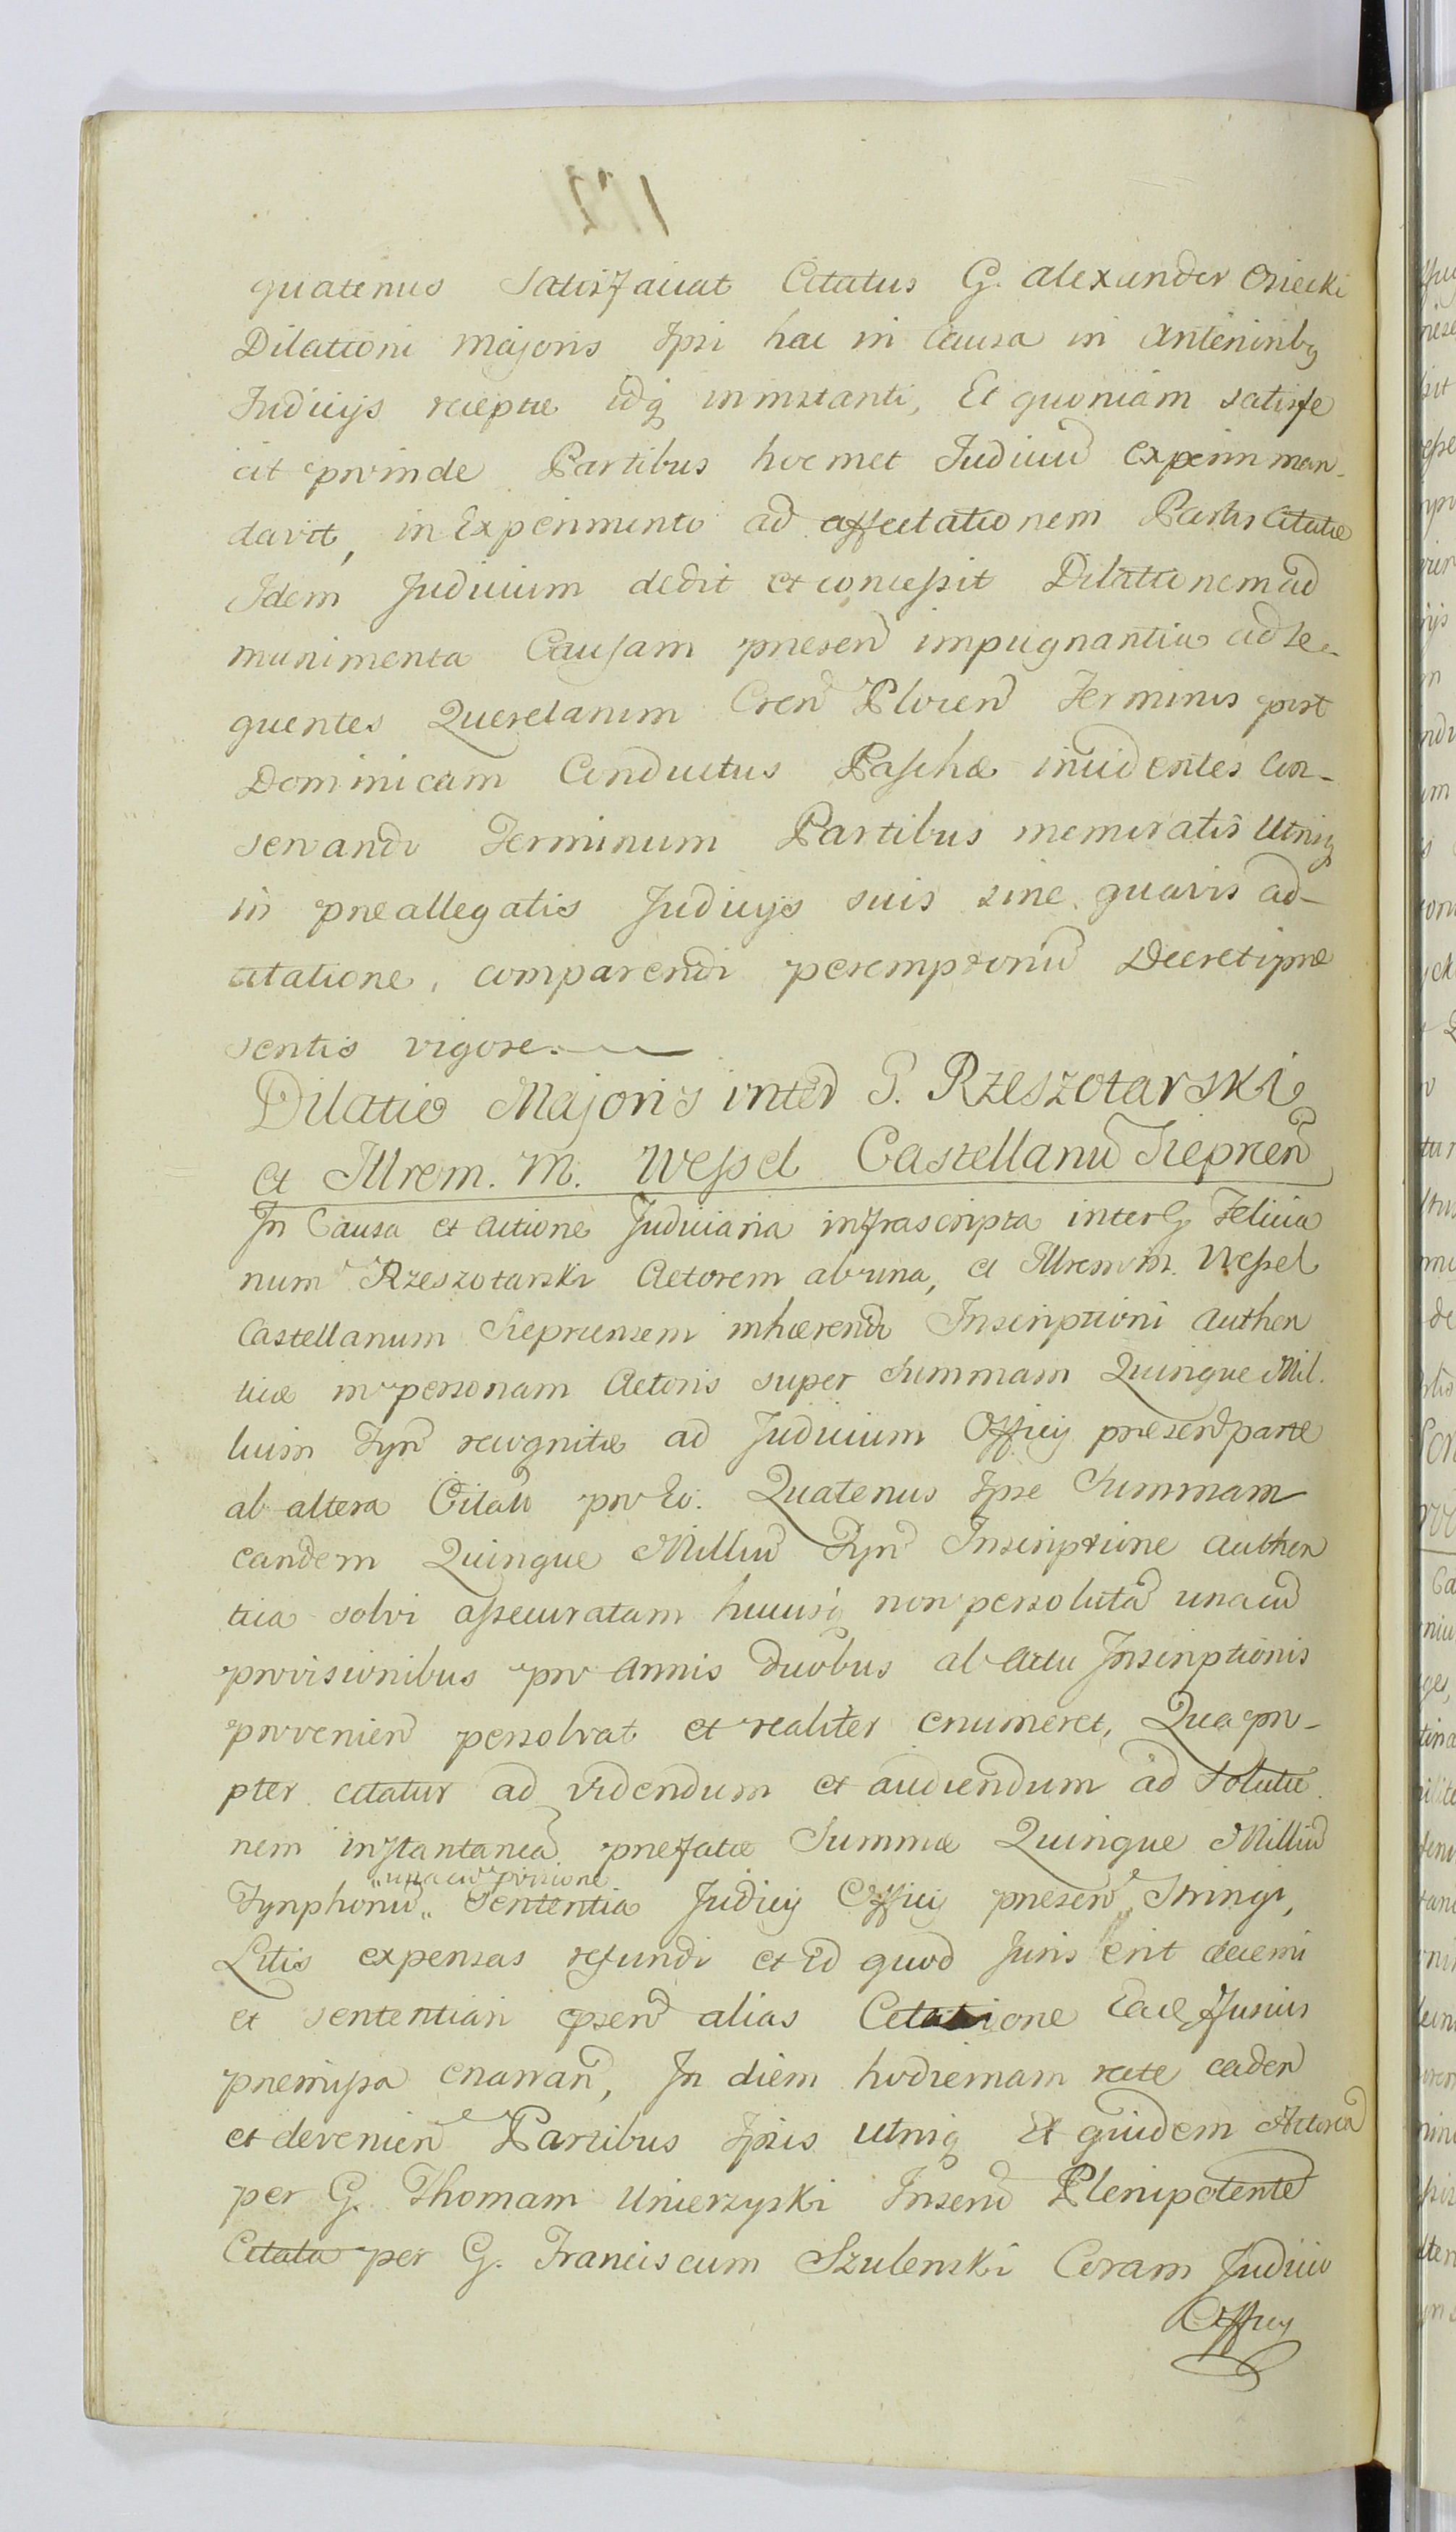 quatenus Satisfaciat Citatus G. Alexander Osiecki
Dilationi Majoris Ipsi hac in Causa in Anterioribq
Judicijs receptæ idq ininstanti, Et quoniam satisfe
cit proinde Partibus hocmet Judiciū experiri man-
davit, in Experimento ad affectationem Partis Citatæ
Idem Judicium dedit et concessit Dilationem ad
munimenta Causam præsen impugnantia ad se-
quentes Querelarum Cren Plocen Terminos post
Dominicam Conductus Paschæ incidentes Con-
servando Terminum Partibus memoratis Utrisq
in præallegatis Judicijs suis sine quavis ad-
citatione, comparendi peremptoriū Decreti præ
sentis vigore.
Dilatio Majoris inter G. Rzeszotarski
et Illrem. M. Wessel Castellanū Sieprcen
In Causa et Actione Judiciaria infrascripta inter G Felicia
num Rzeszotarski Actorem ab una, et Illrem M. Wessel
Castellanum Sieprcensem inhærendo Inscriptioni Authen
ticæ in personam Actoris super Summam Quinque Mil.
lium Tyn recognitæ ad Judicium Officij præsen parte
ab altera Citatū pro Eo. Quatenus Ipse Summam
eandem Quinque Milliū Tyn Inscriptione Authen
tica solvi assecuratam hucusq non persolutā unacū
provisionibus pro Annis duobus ab Actu Inscriptionis
provenien persolvat et realiter enumeret, Qua pro-
pter citatur ad videndum et audiendum ad Solutio
nem instantaneā præfatæ Summæ Quinque Milliū
"unacū provisione
Tynphonū" Sententia Judicij Officij præsen Stringi,
Litis expensas refundi et id quod Juris erit decerni
et sententiari præsen alias Citatione Eade fusius
præmissa enarran, In diem hodiernam recte caden
et devenien Partibus Ipsis utrisq Et quidem Actorea
per G. Thomam Unierzyski Inseriū Plenipotente
Citata per G. Franciscum Szulenski Coram Judicio
Officij